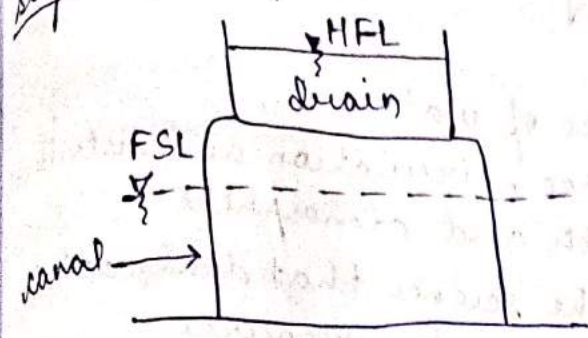 HFL
drain
FSL
canal